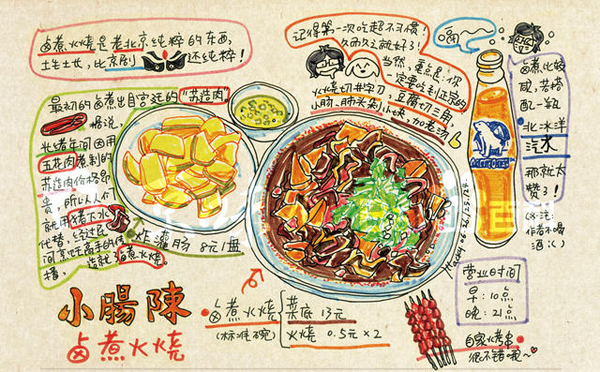 卤煮火烧是老北京纯粹的东西,
土生土长,比京剧还纯粹!
记得第一次吃超不习惯!
久而久之就好了!
当然,重点是:你
一定要吃到正宗的
火烧切井字刀,豆腐切三角,
小肠、肺头剁小块,加老汤
卤煮比较
咸,若搭
配一瓶
北冰洋
汽水
那就太
赞了!
作者不喝
酒
最初的卤煮出自宫廷的"苏造肉"
据说,
光绪年间因用
五花肉煮制的
苏造肉价格昂
贵,所以人们
就用猪大小
代替,经过民
间烹饪高手的传
播,
造就卤煮火烧。
炸灌肠 8元/盘
小腸陳
卤煮火烧
卤煮火烧
(标准碗)
菜底 13元
火烧 0.5元×2
营业时间
早:10点
晚:21点
自家烤串
很不错哦~